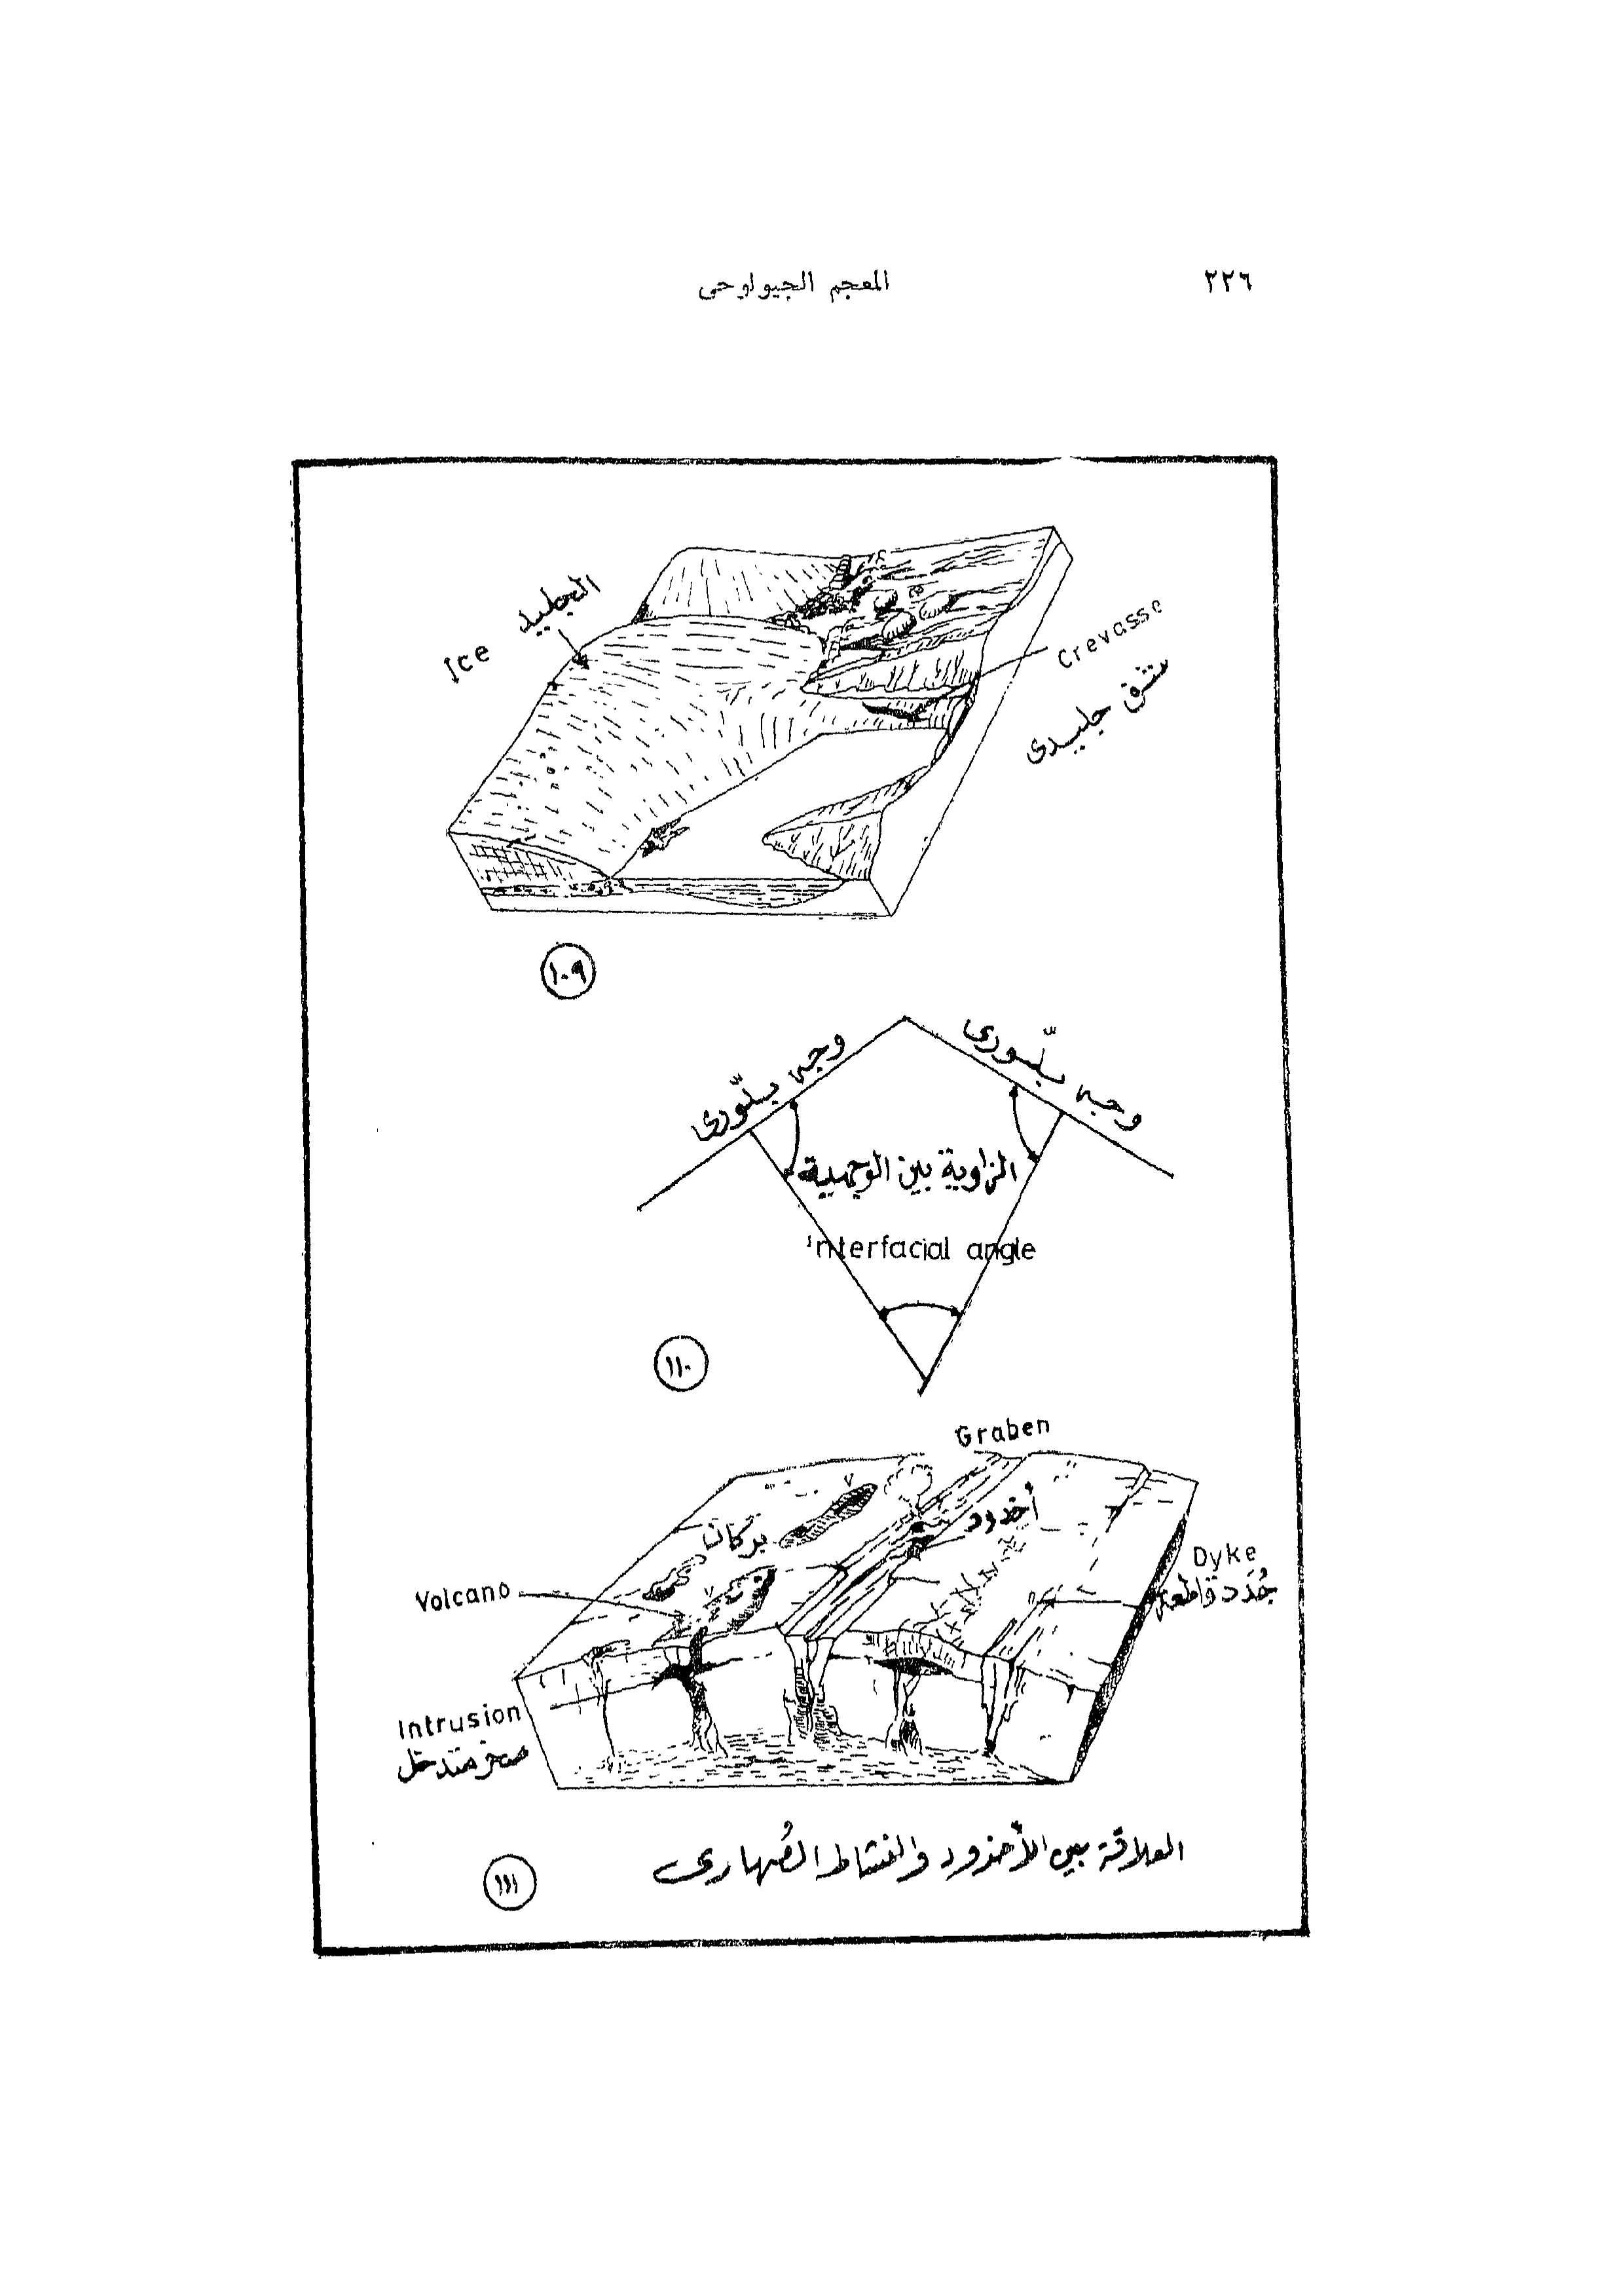 ٢٢٦
المعجم الجيولوجى
الجليد
Ice
Crevasse
شق جليدى
١٠٩
وجه بلّورى
وجه بلّورى
الزاوية بين الوجهية
Interfacial angle
١١٠
Graben
أخدود
بركان
Volcano
Dyke
جُدَد قاطعة
Intrusion
صخر متدخل
العلاقة بين الأخدود والنشاط الصُهارى
١١١